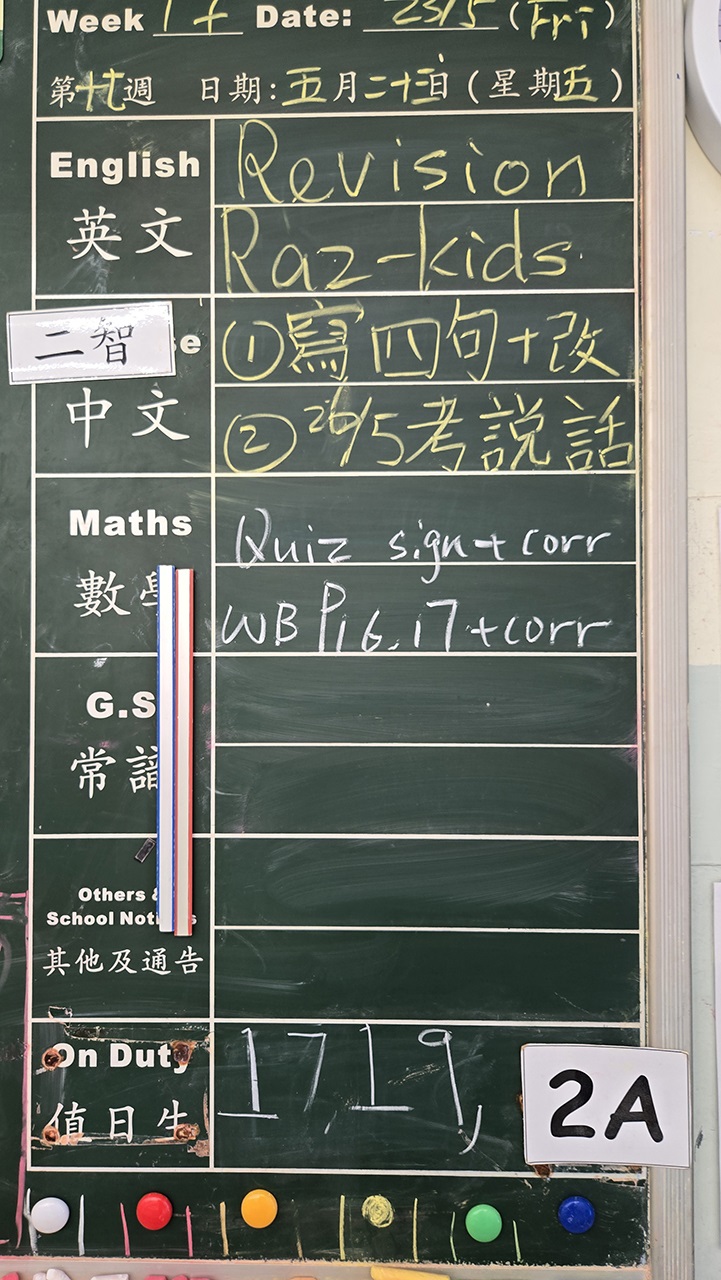 Week 17 Date: 23/5 (Fri)
第十七週 日期:五月二十三日(星期五)
English Revision
英文 Raz-kids
二智
①寫四句+改
中文 ②26/5考説話
Maths Quiz sign+corr
數 WB P16,17+corr
G.S
常
Others &
School Noti s
其他及通告
On Duty 17,19,
值日生
2A